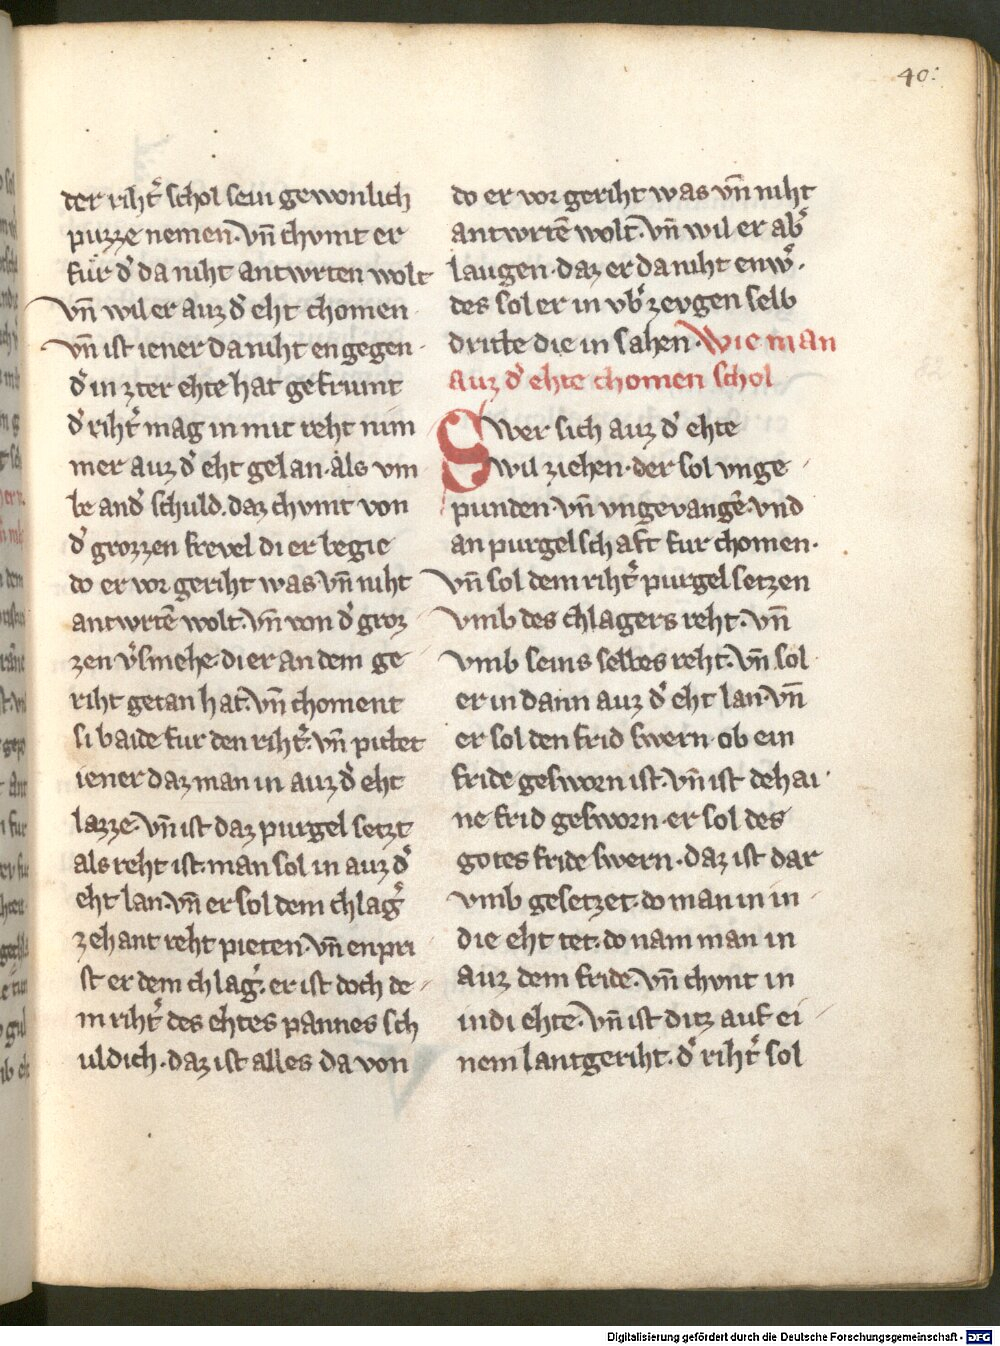 40.
der riht᷑ schol sein gewonlich
puzze nemen. vn̄ chvmt er
fur d᷑ da niht antwrten wolt
vn̄ wil er auz d᷑ eht chomen
vn̄ ist iener da niht engegen
d᷑ in zter ehte hat gefrumt
d᷑ riht᷑ mag in mit reht nim
mer auz d᷑ eht gelan. als vm
be and᷑ schuld. daz chvmt von
d᷑ grozzen frevel di er begie
do er vor geriht was. vn̄ niht
antwrtē wolt. vn̄ von d᷑ groz
zen v᷑smehe. di er an dem ge
riht getan hat. vn̄ choment
si baide fur den riht᷑. vn̄ pitet
iener daz man in auz d᷑ eht
lazze. vn̄ ist daz purgel setzt
als reht ist. man sol in auz d᷑
eht lan. vn̄ er sol dem chlag᷑
zehant reht pieten. vn̄ enpri
st er dem chlag᷑. er ist doch de
m riht᷑ des ehtes pannes sch
uldich. daz ist alles da von
do er vor geriht was vn̄ niht
antwrtē wolt. vn̄ wil er ab᷑
laugen. daz er da niht enw᷑.
des sol er in vb᷑zevgen selb
dritte die in sahen. Wie man
auz d᷑ ehte chomen schol
Swer sich auz d᷑ ehte
wil ziehen. der sol vnge
punden. vn̄ vngevangē. vnd
an purgelschaft fur chomen.
vn̄ sol dem riht᷑ purgel setzen
vmb des chlagers reht. vn̄
vmb seins selbes reht. vn̄ sol
er in dann auz d᷑ eht lan. vn̄
er sol den frid swern. ob ein
fride gesworn ist. vn̄ ist dehai
ne frid gesworn. er sol des
gotes fride swern. daz ist dar
vmb gesetzet. do man in in
die eht tet. do nam man in
auz dem fride. vn̄ chvnt in
in di ehte. vn̄ ist ditz auf ei
nem lantgeriht. d᷑ riht᷑ sol
Digitalisierung gefördert durch die Deutsche Forschungsgemeinschaft - DFG